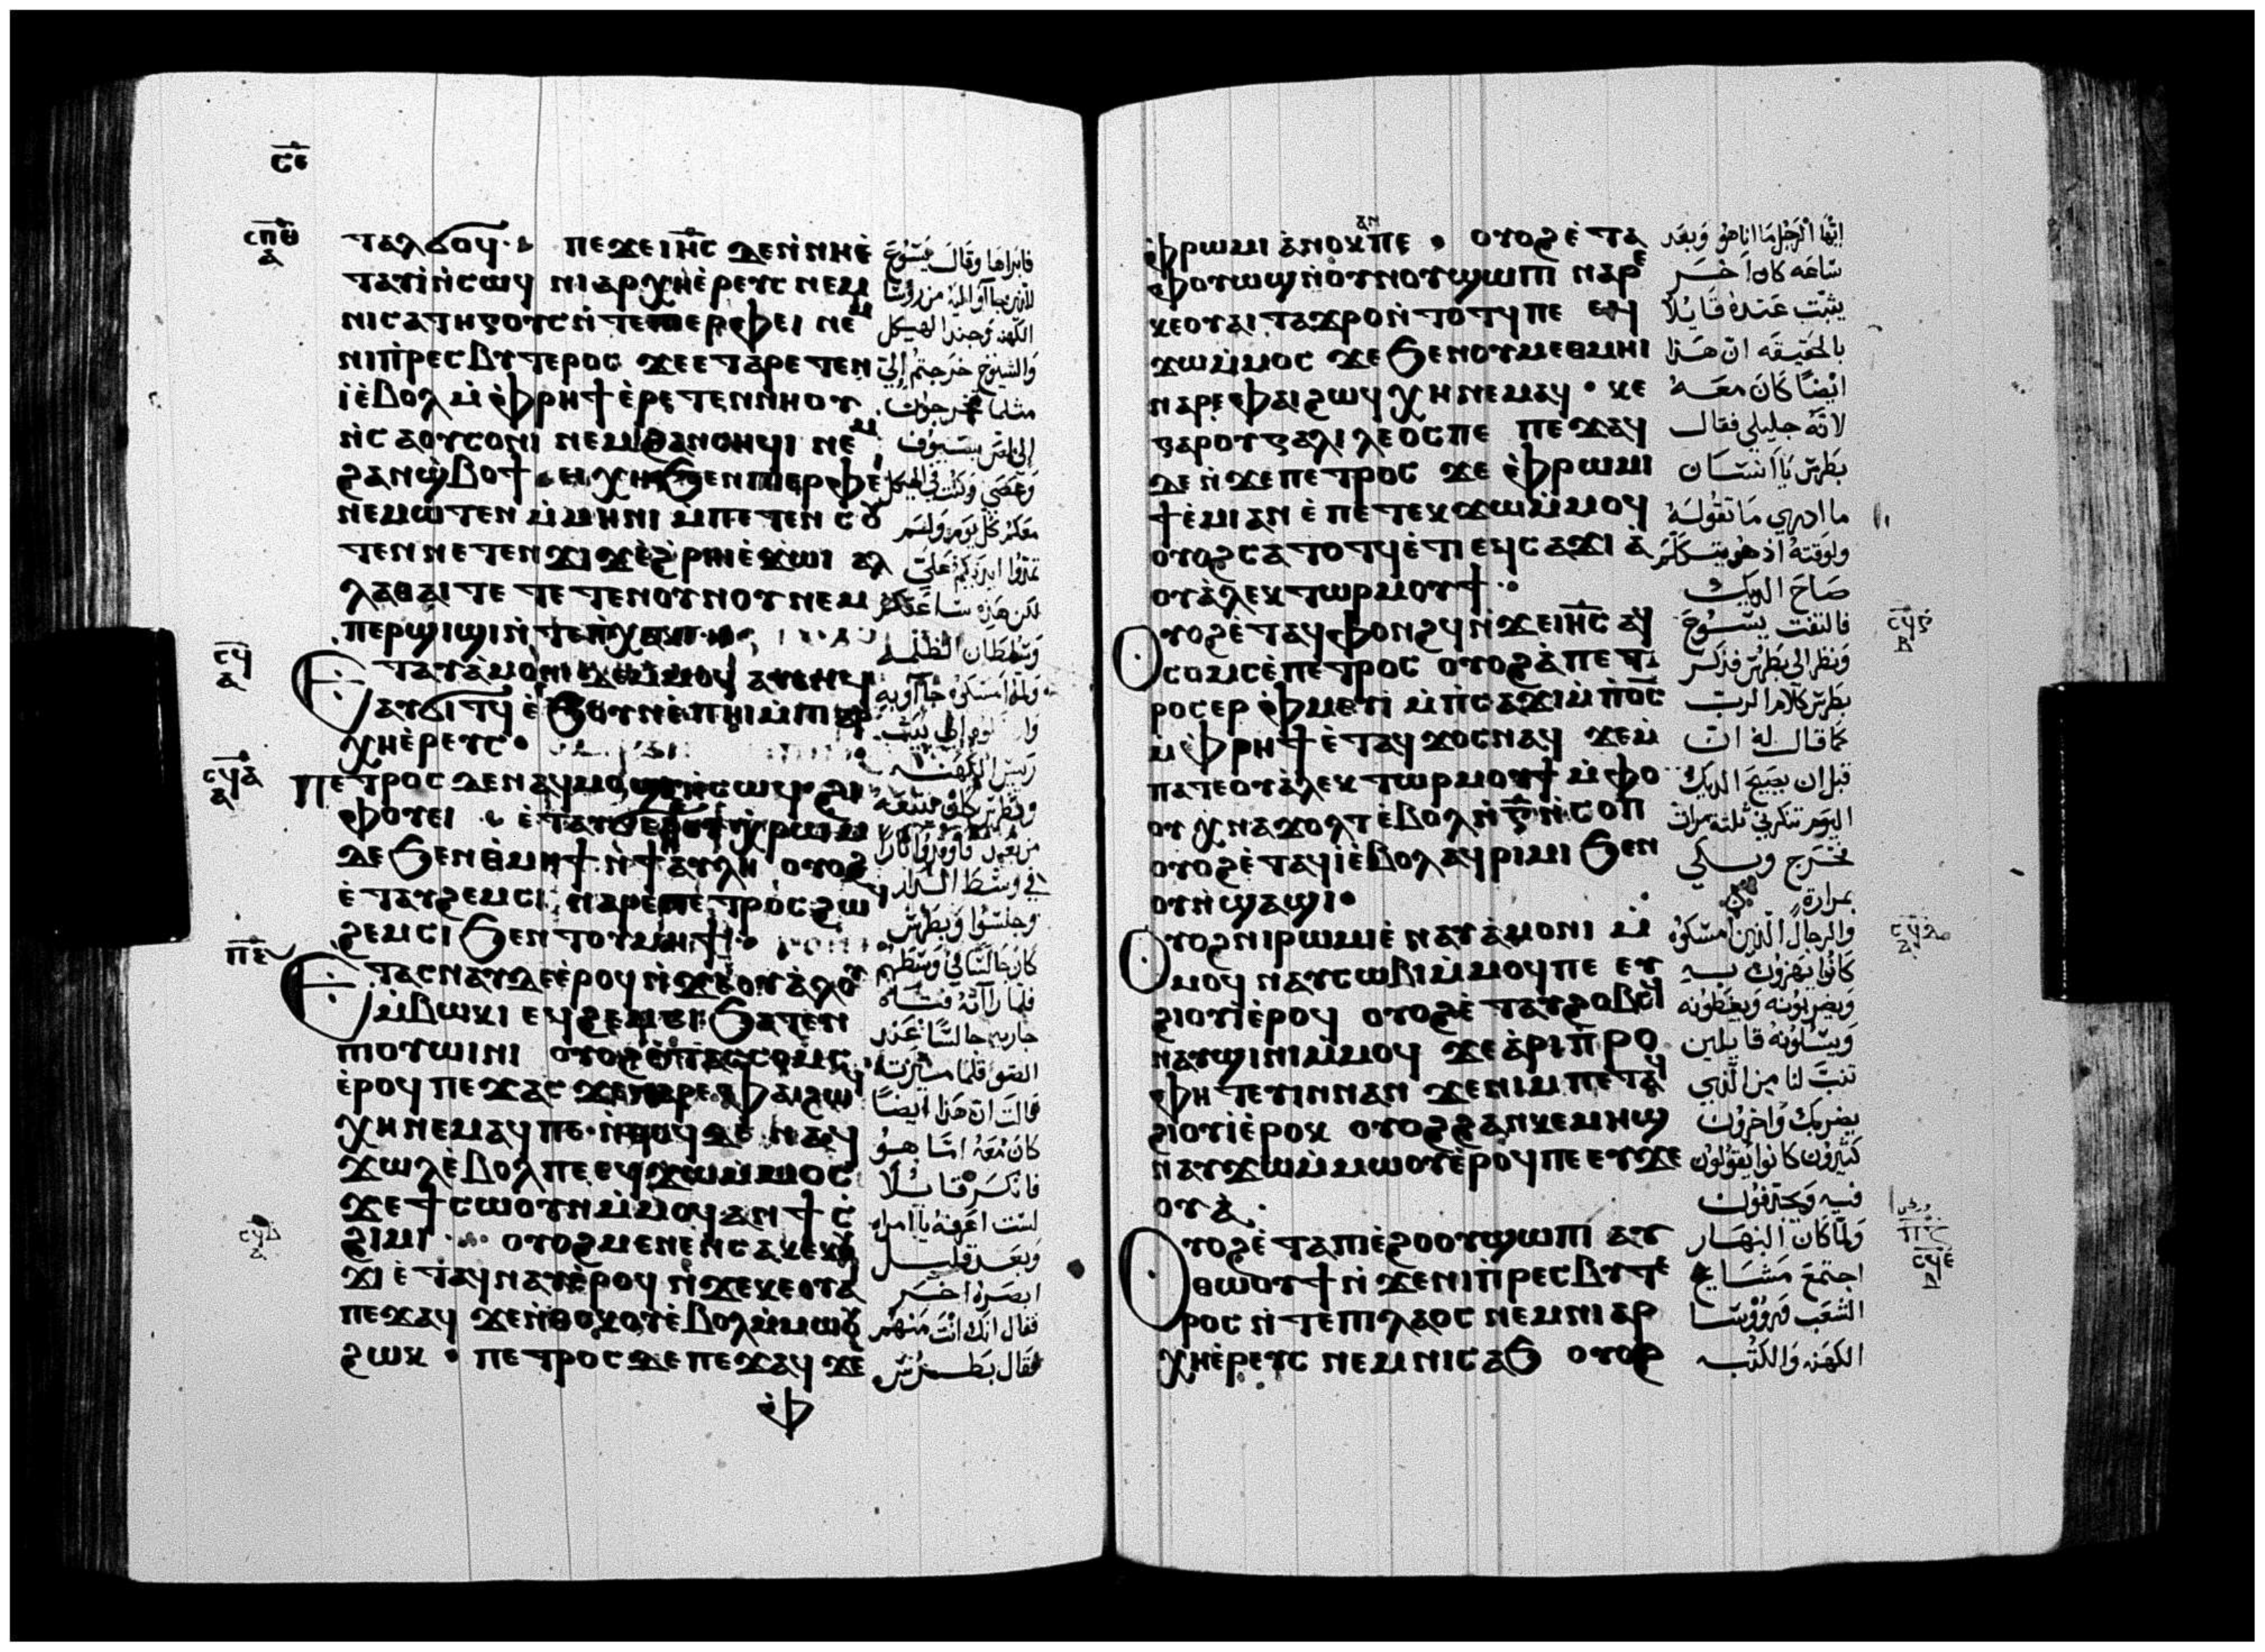 ⲥ̅ⲉ̅
ⲥ̅ⲡ̅ⲑ̅
ⲁ
ⲧⲁⲗϭⲟϥ· ⲡⲉϫⲉ ⲓⲏ̅ⲥ̅ ⲇⲉ ⲛ̀ⲛⲏⲉ̀
ⲧⲁⲩⲓ̀ ⲛ̀ⲥⲱϥ ⲛⲓⲁⲣⲭⲏⲉ̀ⲣⲉⲩⲥ ⲛⲉⲙ
ⲛⲓⲥⲁⲧⲏⲅⲟⲩⲥ ⲛ̀ⲧⲉⲡⲓⲉⲣⲫⲉⲓ ⲛⲉⲙ
ⲛⲓⲡ̀ⲣⲉⲥⲃⲩⲧⲉⲣⲟⲥ ϫⲉ ⲉⲧⲁⲣⲉⲧⲉⲛ
ⲓ̀ ⲉ̀ⲃⲟⲗ ⲙ̀ⲫ̀ⲣⲏϯ ⲉ̀ⲣⲉⲧⲉⲛⲛⲏⲟⲩ
ⲛ̀ⲥⲁ ⲟⲩⲥⲟⲛⲓ ⲛⲉⲙ ϩⲁⲛⲥⲏϥⲓ ⲛⲉⲙ
ϩⲁⲛϣ̀ⲃⲟϯ· ⲉⲓⲭⲏ ϧⲉⲛ ⲡⲓⲉⲣⲫⲉⲓ
ⲛⲉⲙⲱⲧⲉⲛ ⲙ̀ⲙⲏⲛⲓ ⲙ̀ⲡⲉⲧⲉⲛⲥⲟⲩ
ⲧⲉⲛ ⲛⲉⲧⲉⲛϫⲓϫ ⲉ̀ϩ̀ⲣⲏⲓ ⲉ̀ϫⲱⲓ ⲁⲗ
ⲗⲁ ⲑⲁⲓ ⲧⲉ ⲧⲉⲧⲉⲛⲟⲩⲛⲟⲩ ⲛⲉⲙ
ⲡⲉⲣϣⲓϣⲓ ⲛ̀ⲧⲉⲡ̀ⲭⲁⲕⲓ·
ⲥ̅ϥ̅
ⲁ
Ⲉⲧⲁⲩⲁ̀ⲙⲟⲛⲓ ⲇⲉ ⲙ̀ⲙⲟϥ ⲁⲩⲉⲛϥ
ⲁⲩϭⲓⲧϥ ⲉ̀ϧⲟⲩⲛ ⲉ̀ⲡⲏⲓ ⲙ̀ⲡⲓⲁⲣ
ⲭⲏⲉ̀ⲣⲉⲩⲥ·
ⲥ̅ϥ̅ⲁ̅
ⲁ
Ⲡⲉⲧⲣⲟⲥ ⲇⲉ ⲛⲁϥⲙⲟϣⲓ ⲛ̀ⲥⲱϥ ϩⲓ
ⲫⲟⲩⲉⲓ· ⲉ̀ⲧⲁⲩϭⲉⲣⲉ ⲟⲩⲭ̀ⲣⲱⲙ
ⲇⲉ ϧⲉⲛ ⲑ̀ⲙⲏϯ ⲛ̀ϯⲁⲩⲗⲏ ⲟⲩⲟϩ
ⲉ̀ⲧⲁⲩϩⲉⲙⲥⲓ ⲛⲁⲣⲉ ⲡⲉⲧⲣⲟⲥ ϩⲱϥ
ϩⲉⲙⲥⲓ ϧⲉⲛ ⲧⲟⲩⲙⲏϯ·
ⲡ̅ⲉ̅
Ⲉⲧⲁⲥⲛⲁⲩ ⲇⲉ ⲉ̀ⲣⲟϥ ⲛ̀ϫⲉ ⲟⲩⲁ̀ⲗⲟⲩ
ⲙ̀ⲃⲱⲕⲓ ⲉϥϩⲉⲙⲥⲓ ϧⲁⲧⲉⲛ
ⲡⲓⲟⲩⲱⲓⲛⲓ ⲟⲩⲟϩ ⲉ̀ⲧⲁⲥⲥⲟⲙⲥ
ⲉ̀ⲣⲟϥ ⲡⲉϫⲁⲥ ϫⲉ ⲛⲁⲣⲉ ⲫⲁⲓ ϩⲱϥ
ⲭⲏ ⲛⲉⲙⲁϥ ⲡⲉ· ⲛ̀ⲑⲟϥ ⲇⲉ ⲛⲁϥ
ϫⲱⲗ ⲉ̀ⲃⲟⲗ ⲡⲉ ⲉϥϫⲱ ⲙ̀ⲙⲟⲥ
ϫⲉ ϯⲥⲱⲟⲩⲛ ⲙ̀ⲙⲟϥ ⲁⲛ ϯⲥ̀
ϩⲓⲙⲓ· ⲟⲩⲟϩ ⲙⲉⲛⲉⲛⲥⲁ ⲕⲉⲕⲟⲩ
ϫⲓ ⲉ̀ⲧⲁϥⲛⲁⲩ ⲉ̀ⲣⲟϥ ⲛ̀ϫⲉ ⲕⲉⲟⲩⲁ
ⲡⲉϫⲁϥ ϫⲉ ⲛ̀ⲑⲟⲕ ⲟⲩⲉ̀ⲃⲟⲗ ⲙ̀ⲙⲱⲟⲩ
ϩⲱⲕ· ⲡⲉⲧⲣⲟⲥ ⲇⲉ ⲡⲉϫⲁϥ ϫⲉ
ⲫ̀
فابراها وقال يسوع
الكهنه وجند الهيكل
والشيوخ خرجتم إلي
مثلما تخرجون
معكم كل يوم ولم
لكن هذه ساعتكم
وسلطان الظلمه
ريس الكهنه
في وسط الدار
وجلسوا وبطرس
كان جالسًا في وسطهم
فلما رآته فتاه
جاريه جالسًا عند
قالت ان هذا ايضًا
كان معه امّا هو
فانكر قايلًا
لست اعرفه يا امراه
وبعد قليل
ابصره اخر
فقال انك انت منهم
فقال بطرس
ⲫ̀ⲣⲱⲙⲓ ⲁ̀ⲛⲟⲕ ⲁⲛ ⲡⲉ· ⲟⲩⲟϩ ⲉ̀ⲧⲁ
ⲫⲟⲩⲱϣ ⲛ̀ⲟⲩⲛⲟⲩ ϣⲱⲡⲓ ⲛⲁⲣⲉ
ⲕⲉⲟⲩⲁⲓ ⲧⲁϫⲣⲟ ⲛ̀ⲧⲟⲧϥ ⲡⲉ ⲉϥ
ϫⲱ ⲙ̀ⲙⲟⲥ ϫⲉ ϧⲉⲛ ⲟⲩⲙⲉⲑⲙⲏⲓ
ⲛⲁⲣⲉ ⲫⲁⲓ ϩⲱϥ ⲭⲏ ⲛⲉⲙⲁϥ· ⲕⲉ
ⲅⲁⲣ ⲟⲩⲅⲁⲗⲓⲗⲉⲟⲥ ⲡⲉ ⲡⲉϫⲁϥ
ⲇⲉ ⲛ̀ϫⲉ ⲡⲉⲧⲣⲟⲥ ϫⲉ ⲫ̀ⲣⲱⲙⲓ
ϯⲉ̀ⲙⲓ ⲁⲛ ⲉ̀ⲡⲉⲧⲉⲕϫⲱ ⲙ̀ⲙⲟϥ
ⲟⲩⲟϩ ⲥⲁⲧⲟⲧϥ ⲉ̀ⲧⲓ ⲉϥⲥⲁϫⲓ ⲁ̀
ⲟⲩⲁ̀ⲗⲉⲕⲧⲱⲣ ⲙⲟⲩϯ·
Ⲟⲩⲟϩ ⲉ̀ⲧⲁϥⲫⲟⲛϩϥ ⲛ̀ϫⲉ ⲓⲏ̅ⲥ̅ ⲁϥ
ⲥⲟⲙⲥ ⲉ̀ⲡⲉⲧⲣⲟⲥ ⲟⲩⲟϩ ⲁ̀ ⲡⲉⲧ
ⲣⲟⲥ ⲉⲣⲫ̀ⲙⲉⲩⲓ̀ ⲙ̀ⲡ̀ⲥⲁϫⲓ ⲙ̀ⲡ̅ⲟ̅ⲥ̅
ⲙ̀ⲫ̀ⲣⲏϯ ⲉ̀ⲧⲁϥϫⲟⲥ ⲛⲁϥ ϫⲉ ⲙ̀
ⲡⲁⲧⲉ ⲟⲩⲁ̀ⲗⲉⲕⲧⲱⲣ ⲙⲟⲩϯ ⲙ̀ⲫⲟ
ⲟⲩ ⲭⲛⲁϫⲟⲗⲧ ⲉ̀ⲃⲟⲗ ⲛ̀ⲅ̅ ⲛ̀ⲥⲟⲡ
ⲟⲩⲟϩ ⲉ̀ⲧⲁϥⲓ̀ ⲉ̀ⲃⲟⲗ ⲁϥⲣⲓⲙⲓ ϧⲉⲛ
ⲟⲩⲛ̀ϣⲁϣⲓ·
Ⲟⲩⲟϩ ⲛⲓⲣⲱⲙⲓ ⲉ̀ⲛⲁⲩⲁ̀ⲙⲟⲛⲓ ⲙ̀
ⲙⲟϥ ⲛⲁⲩⲥⲱⲃⲓ ⲙ̀ⲙⲟϥ ⲡⲉ ⲉⲩ
ϩⲓⲟⲩⲓ̀ ⲉ̀ⲣⲟϥ ⲟⲩⲟϩ ⲉ̀ⲧⲁⲩϩⲟⲃⲥϥ
ⲛⲁⲩϣⲓⲛⲓ ⲙ̀ⲙⲟϥ ϫⲉ ⲁ̀ⲣⲓⲡ̀ⲣⲟ
ⲫⲏⲧⲉⲩⲓⲛ ⲛⲁⲛ ϫⲉ ⲛⲓⲙ ⲡⲉⲧⲁϥ
ϩⲓⲟⲩⲓ̀ ⲉ̀ⲣⲟⲕ ⲟⲩⲟϩ ϩⲁⲛⲕⲉⲙⲏϣ
ⲛⲁⲩϫⲱ ⲙ̀ⲙⲱⲟⲩ ⲉ̀ⲣⲟϥ ⲡⲉ ⲉⲩϫⲉ
ⲟⲩⲁ̀·
Ⲟⲩⲟϩ ⲉ̀ⲧⲁ ⲡⲓⲉ̀ϩⲟⲟⲩ ϣⲱⲡⲓ ⲁⲩ
ⲑⲱⲟⲩϯ ⲛ̀ϫⲉ ⲛⲓⲡ̀ⲣⲉⲥⲃⲩⲧⲉ
ⲣⲟⲥ ⲛ̀ⲧⲉ ⲡⲓⲗⲁⲟⲥ ⲛⲉⲙ ⲛⲓⲁⲣ
ⲭⲏⲉ̀ⲣⲉⲩⲥ ⲛⲉⲙ ⲛⲓⲥⲁϧ ⲟⲩⲟϩ
ايها الرجل ما انا هو وبعد
ساعه كان اخر
يثبت عنده قايلًا
بالحقيقه ان هذا
ايضًا كان معه
لانه جليلي فقال
بطرس يا انسان
ما ادري ما تقوله
ولوقته اذ هو يتكلم
صاح الديك
فالتفت يسوع
ونظر الى بطرس فذكر
بطرس كلام الرب
كما قال له ان
قبل ان يصيح الديك
اليوم تنكرني ثلثه مرات
فخرج وبكي
بمرارة
والرجال الذين امسكوه
كانوا يهزون به
ويضربونه ويغطونه
ويسلونه قايلين
تنبّ لنا من الذي
يضربك واخرون
كثيرون كانوا يقولون
فيه ويجدفون
ولما كان النهار
اجتمع مشايخ
الشعب وروسا
الكهنه والكتبه